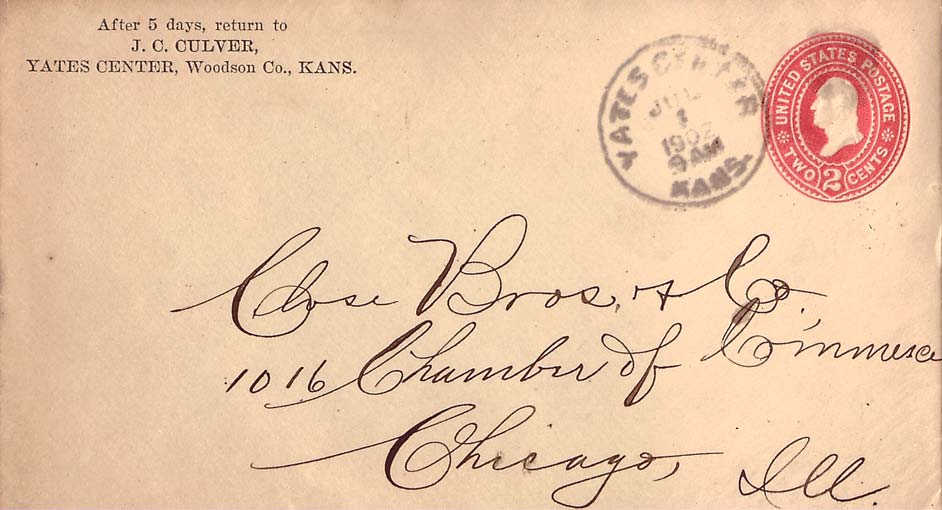 After 5 days, return to
J. C. CULVER,
YATES CENTER, Woodson Co., KANS.
YATES CENTER
JUL
1
1902
9 AM
KANS.
UNITED STATES POSTAGE
TWO 2 CENTS
Close Bros. & Co.
1016 Chamber of Commerce
Chicago, Ill.